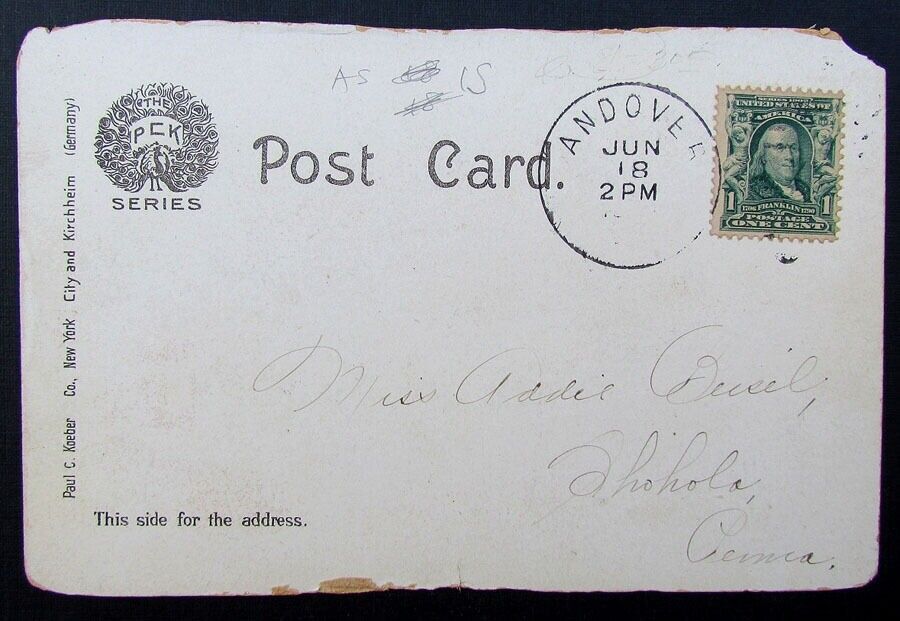 AS IS
THE
PCK
SERIES
Post Card.
ANDOVER
JUN
18
2 PM
SERIES 1902
UNITED STATES OF
AMERICA
1706 FRANKLIN 1790
1 1
POSTAGE
ONE CENT
Paul C. Koeber Co., New York City and Kirchheim (Germany)
Miss Addie Beisel,
Shohola,
Penna.
This side for the address.